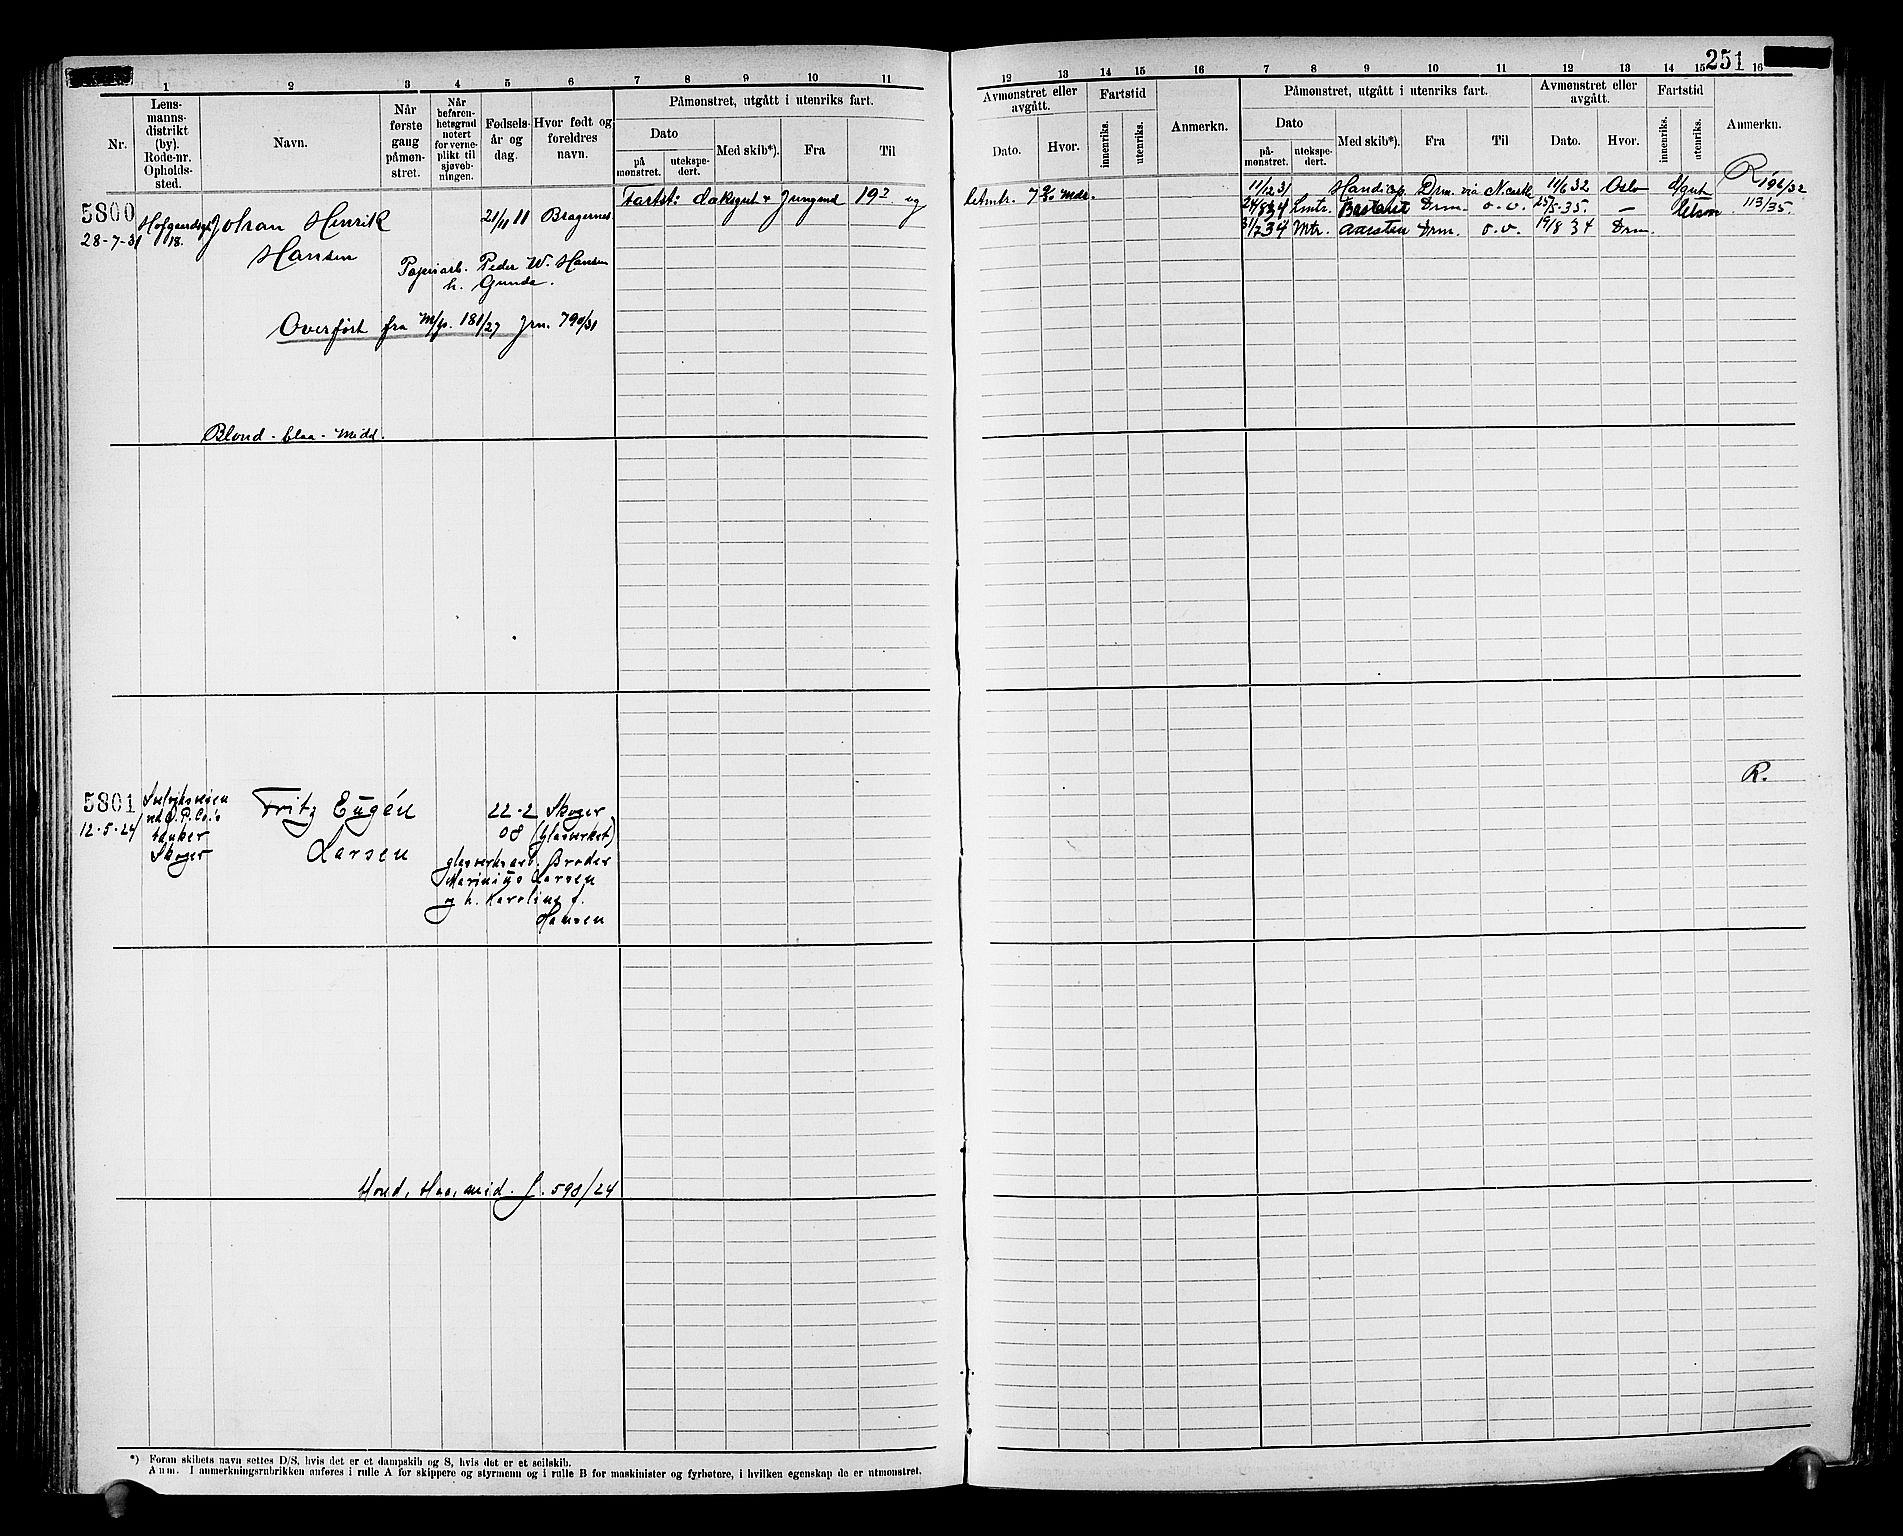 251
1 2 3 4 5 6 7 8 9 10 11
12 13 14 15 16 7 8 9 10 11 12 13 14 15 16
Nr.
Lens-
manns-
distrikt
(by).
Rode-nr.
Opholds-
sted.
Navn.
Når
første
gang
påmøn-
stret.
Når
befaren-
hetsgrad
notert
for verne-
plikt til
sjøvæb-
ningen.
Fødsels-
år og
dag.
Hvor født og
foreldres
navn.
Påmønstret, utgått i utenriks fart.
Dato
på
mønstret.
utekspe-
dert.
Med skib*).
Fra
Til
Avmønstret eller
avgått.
Dato.
Hvor.
Fartstid
innenriks.
utenriks.
Anmerkn.
Påmønstret, utgått i utenriks fart.
Dato
på-
mønstret.
utekspe-
dert.
Med skib*).
Fra
Til
Avmønstret eller
avgått.
Dato.
Hvor.
Fartstid
innenriks.
utenriks.
Anmerkn.
5800
28-7-31
18.
Johan Henrik
Hansen
21/11 11
Bragernes
Papirarb. Peder W. Hansen
h. Gunda.
Overført fra M/p. 181/27 Jrn. 790/31
Blond - blaa - Midd.
Fartst: daksgut + Jungmd 19 og
letmtr. 7 Mdr.
11/12 31 Handicap. Drm. via 11/6 32 Oslo d/gut R 196/32
34 Lmtr. Drm. o. v. 25/5-35. — 113/35.
34 Mtr. Drm. o. v. 19/8 34 Drm.
5801
12-5-24
tanker
Skoger
Fritz Eugén
Larsen
22-2
08
Skoger
(Glasverket)
glasverksarb. Broder
Marinius Larsen
og h. Karoline f.
Hansen
R.
blond, blaa, mid. J. 590/24
*) Foran skibets navn settes D/S, hvis det er et dampskib og S, hvis det er et seilskib.
Anm. I anmerkningsrubrikken anføres i rulle A for skippere og styrmenn og i rulle B for maskinister og fyrbøtere, i hvilken egenskap de er utmønstret.